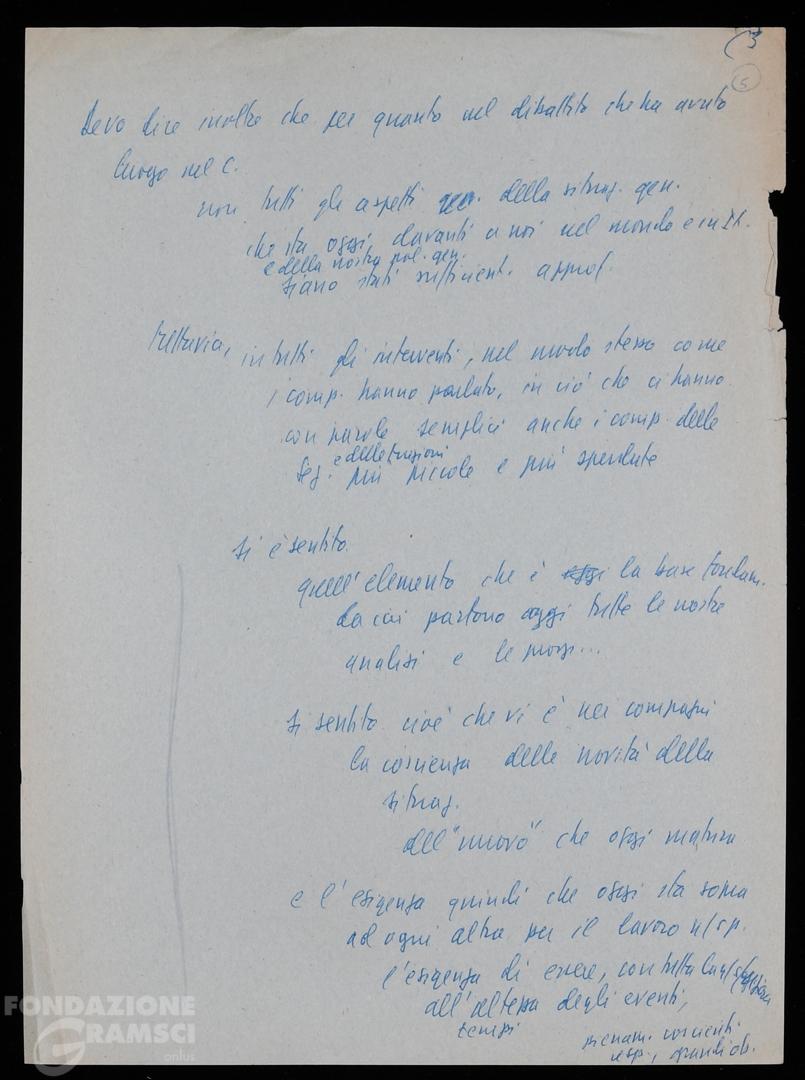 3
5
Devo dire inoltre che per quanto nel dibattito che ha avuto
luogo nel C.
non tutti gli aspetti della situaz. gen.
che sta oggi, davanti a noi nel mondo e in It.
e della nostra pol. gen.
siano stati sufficient. approf.
tuttavia, in tutti gli interventi, nel modo stesso come
i comp. hanno parlato, in ciò che ci hanno
con parole semplici anche i comp. delle
e delle frazioni
Sez. più piccole e più sperdute
si è sentito
quell'elemento che è la base fondam.
da cui partono oggi tutte le nostre
analisi e le
si sentito cioè che vi è nei compagni
la coscienza delle novità della
situaz.
dell'"nuovo" che oggi matura
e l'esigenza quindi che oggi sta sopra
ad ogni altra per il lavoro n/
l'esigenza di essere, con tutta la n/
all'altezza degli eventi,
tempi
pienam. coscienti
resp., grandi
FONDAZIONE
GRAMSCI
onlus